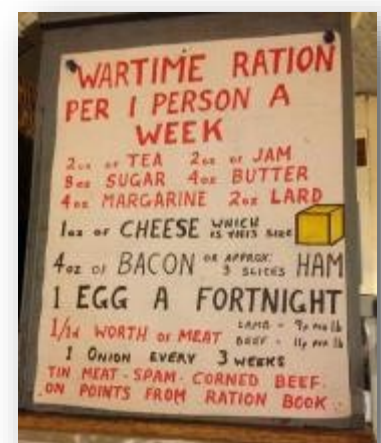 WARTIME RATION
PER 1 PERSON A
WEEK
2oz OF TEA 2oz OF JAM
8oz SUGAR 4oz BUTTER
4oz MARGARINE 2oz LARD
1oz OF CHEESE WHICH IS THIS SIZE
4oz OF BACON OR APPROX: 3 SLICES HAM
1 EGG A FORTNIGHT
1/1d WORTH OF MEAT LAMB - BEEF -
1 ONION EVERY 3 WEEKS
TIN MEAT - SPAM - CORNED BEEF.
ON POINTS FROM RATION BOOK